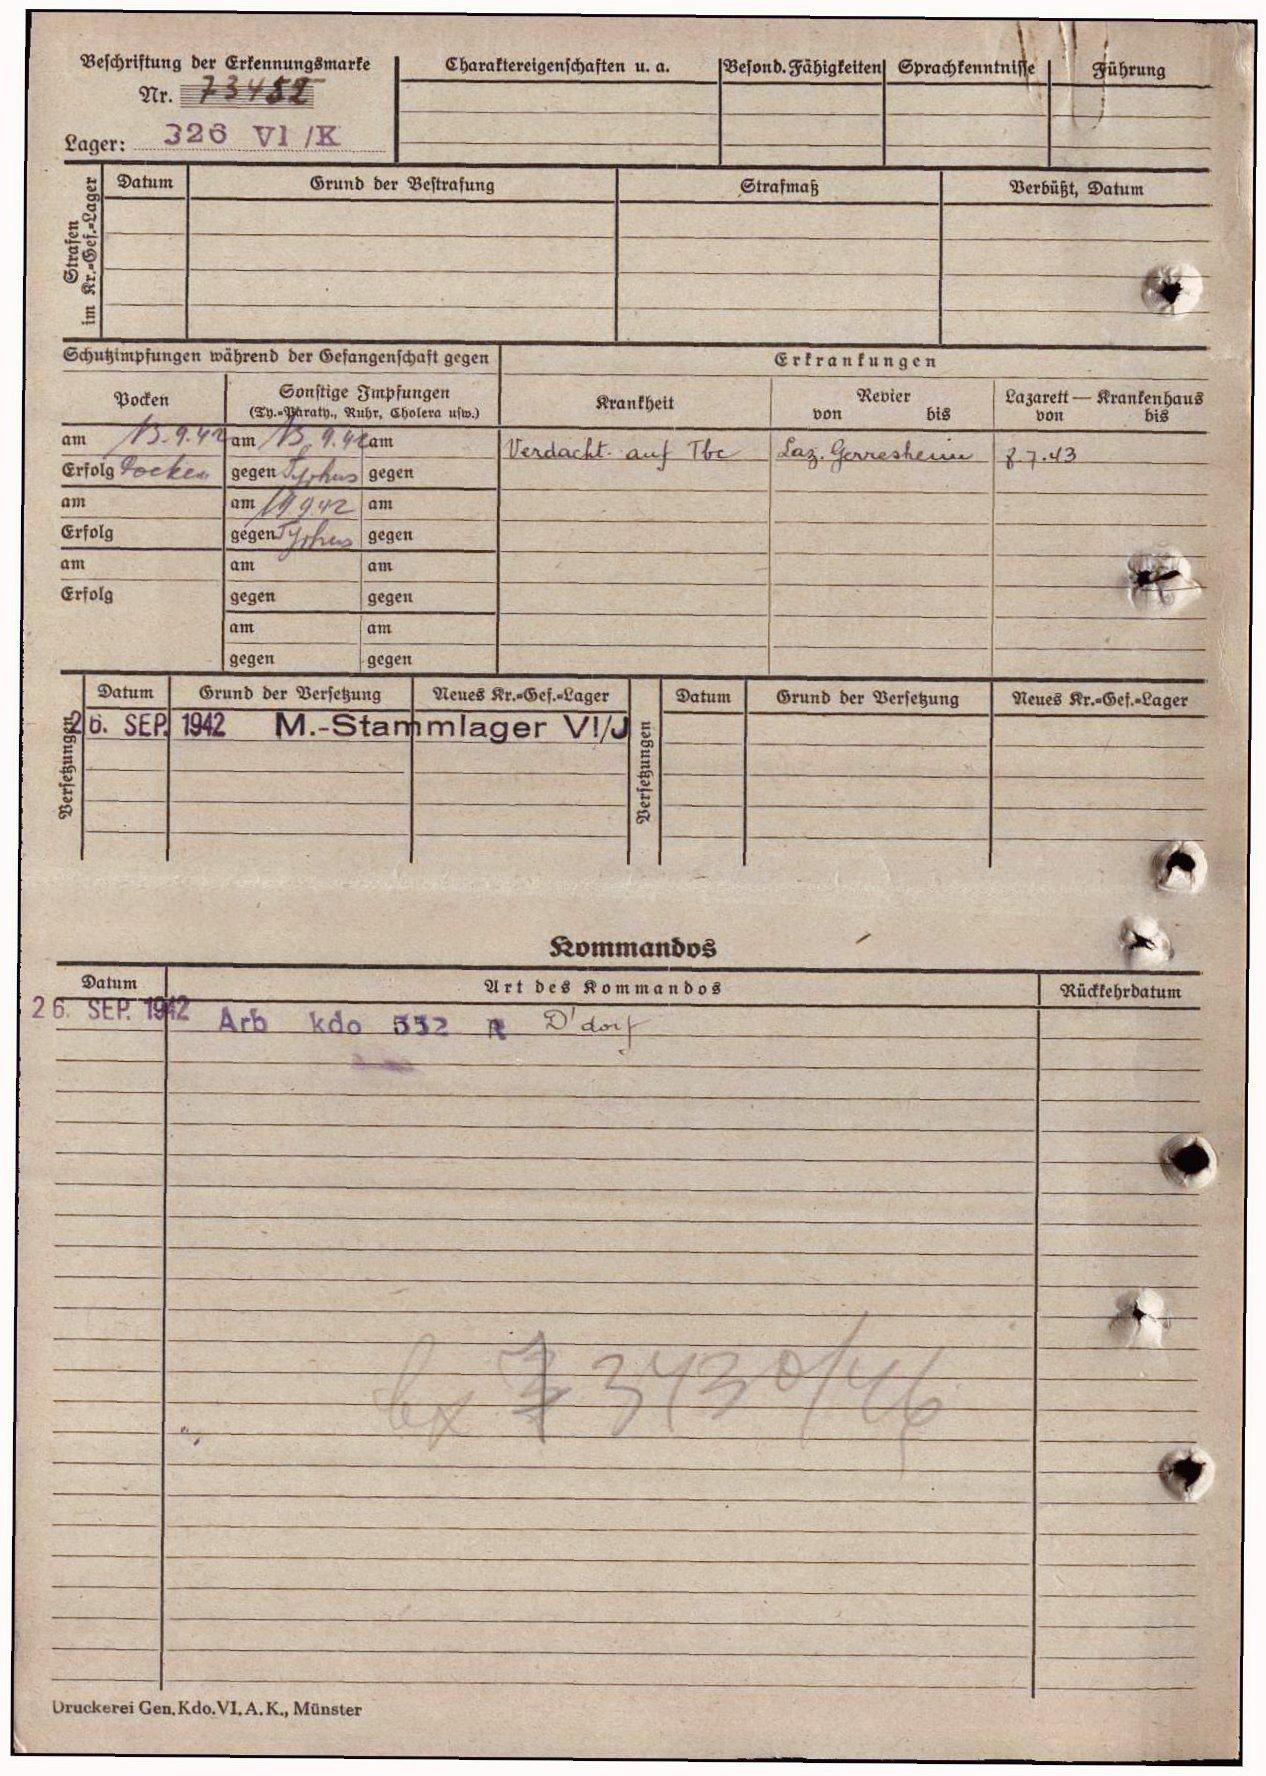 Beschriftung der Erkennungsmarke
Nr. 73452
Lager: 326 VI/K
Charaktereigenschaften u. a.
Besond. Fähigkeiten
Sprachkenntnisse
Führung
Strafen im Kr.=Gef.=Lager
Datum
Grund der Bestrafung
Strafmaß
Verbüßt, Datum
Schutzimpfungen während der Gefangenschaft gegen
Erkrankungen
Pocken
Sonstige Impfungen
(Ty.=Paraty., Ruhr, Cholera usw.)
Krankheit
Revier
von bis
Lazarett — Krankenhaus
von bis
am 13.9.42 am 13.9.42 am
Verdacht auf Tbc Laz. Gerresheim 8.7.43
Erfolg Pocken gegen Typhus gegen
am am 19.9.42 am
Erfolg gegen Typhus gegen
am am am
Erfolg gegen gegen
am am
gegen gegen
Versetzungen
Datum
Grund der Versetzung
Neues Kr.=Gef.=Lager
26. SEP. 1942 M.-Stammlager VI/J
Versetzungen
Datum
Grund der Versetzung
Neues Kr.=Gef.=Lager
Kommandos
Datum
Art des Kommandos
Rückkehrdatum
26. SEP. 1942 Arb kdo 552 R D'dorf
3430/46
Druckerei Gen. Kdo. VI. A. K., Münster